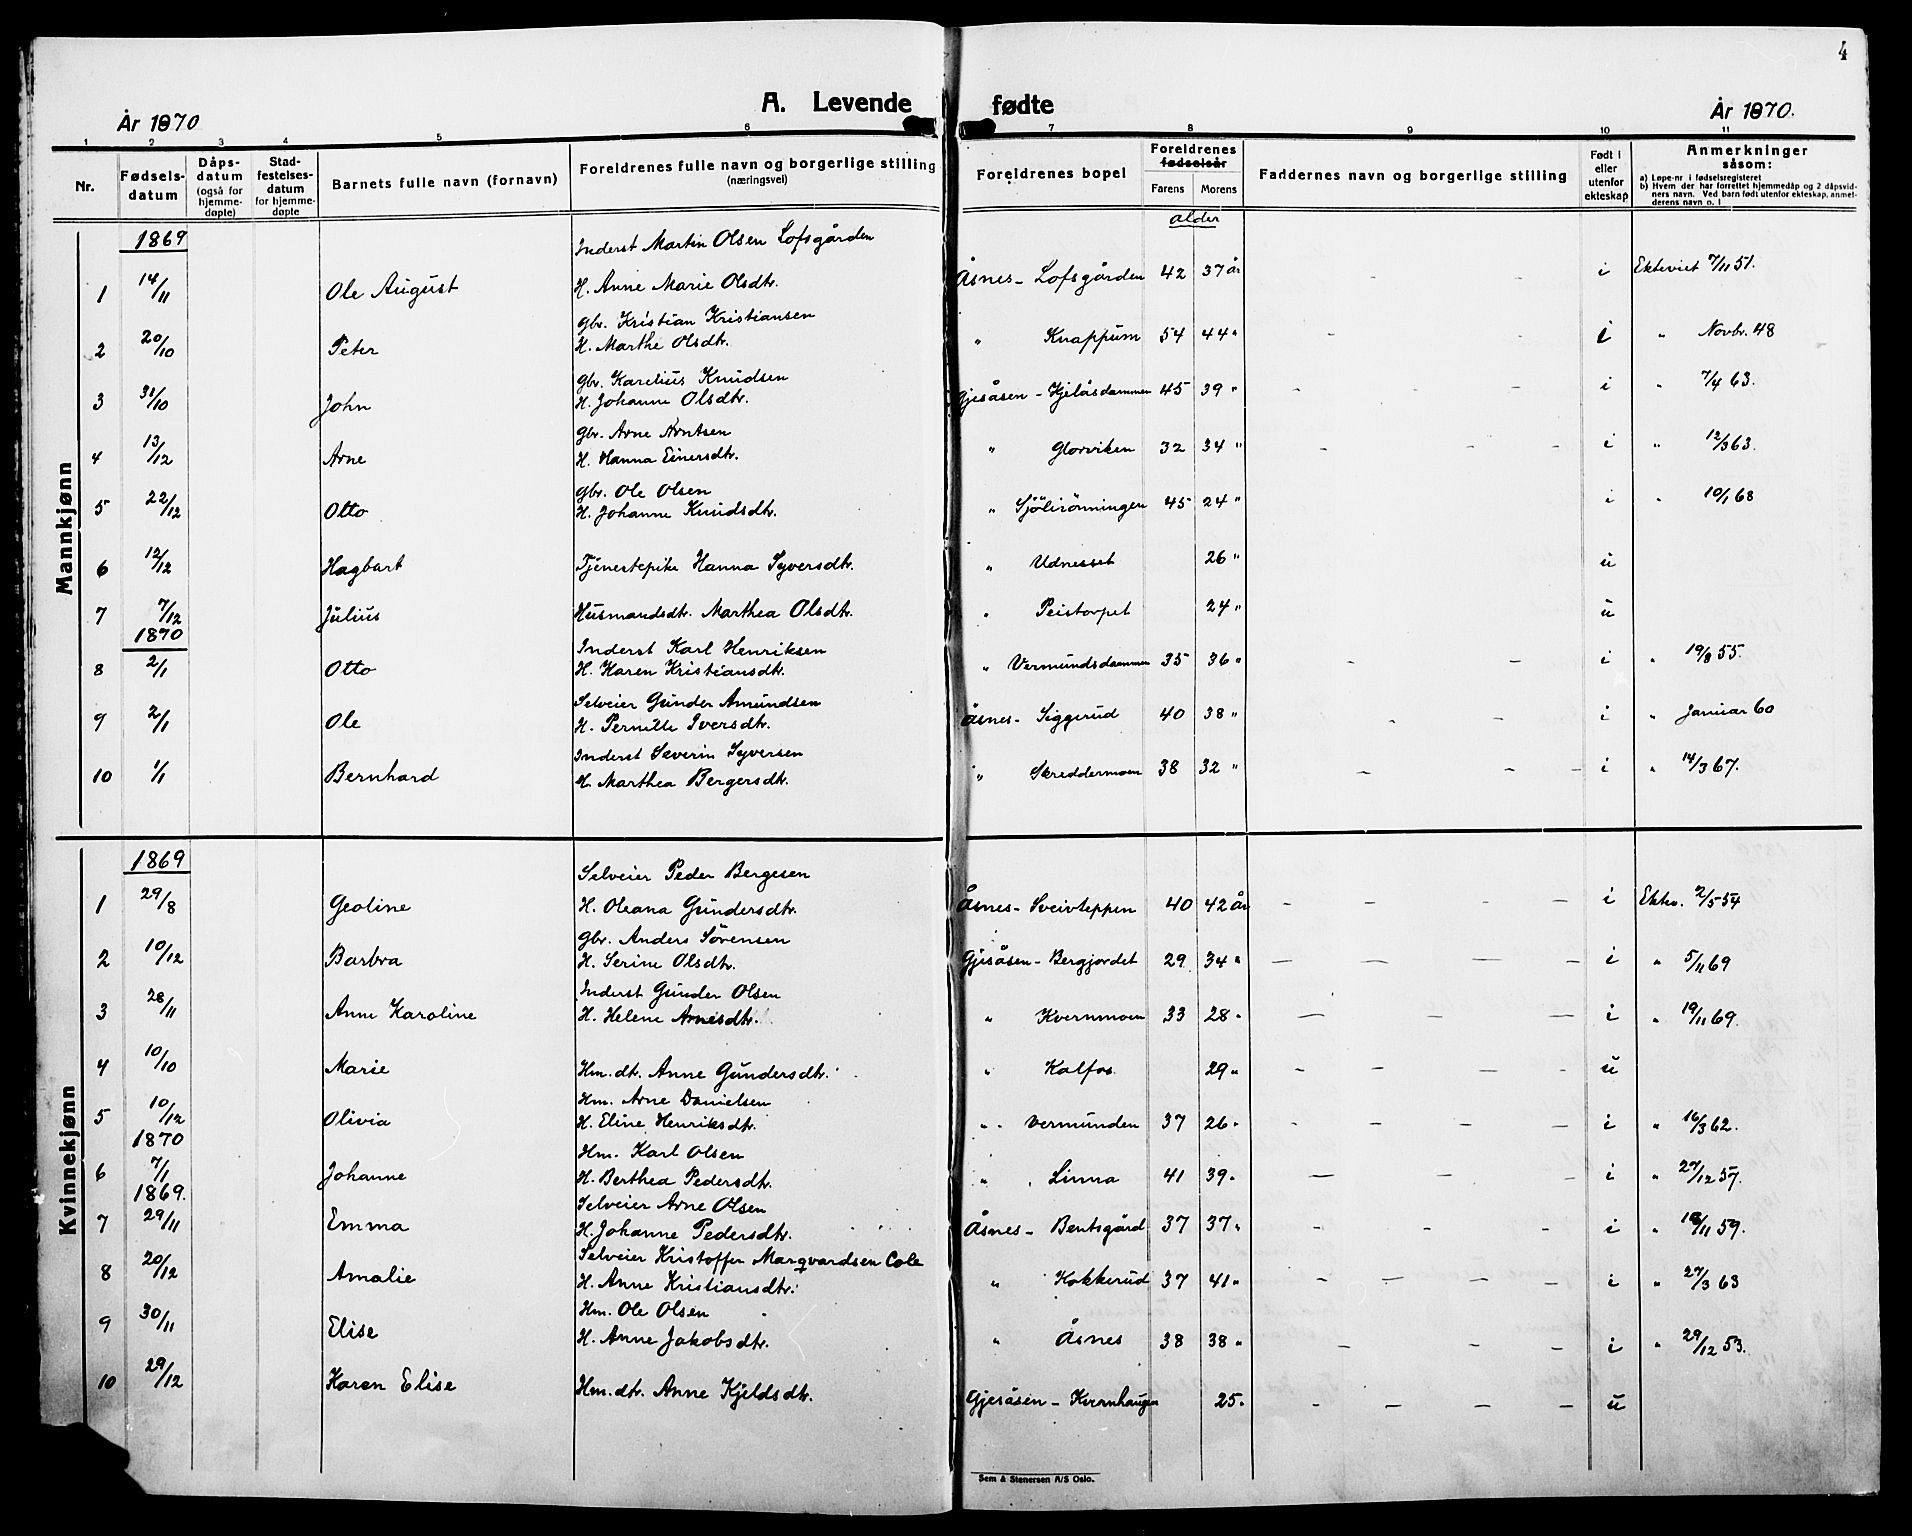 4
A. Levende fødte
År 1870 År 1870.
1 2 3 4 5 6 7 8 9 10 11
Nr. Fødselsdatum Dåpsdatum (også for hjemmedøpte) Stadfestelsesdatum for hjemmedøpte Barnets fulle navn (fornavn) Foreldrenes fulle navn og borgerlige stilling (næringsvei) Foreldrenes bopel Foreldrenes fødselsår Farens Morens Faddernes navn og borgerlige stilling Født i eller utenfor ekteskap Anmerkninger såsom: a) Løpe-nr i fødselsregisteret b) Hvem der har forrettet hjemmedåp og 2 dåpsvidners navn. Ved barn født utenfor ekteskap, anmelderens navn o. l
alder
Mannkjønn
1869 Inderst Martin Olsen Lofsgården
1 14/11 Ole August H. Anne Marie Olsdtr. Åsnes - Lofsgården 42 37 år - - - i Ekteviet 7/11 51.
Gbr. Kristian Kristiansen
2 20/10 Peter H. Marthe Olsdtr. " Knappum 54 44 " - - i " Novbr. 48
Gbr. Karelius Knudsen
3 31/10 John H. Johanne Olsdtr. Gjesåsen - Kjelåsdammen 45 39 " - - - i " 7/4 63.
Gbr. Arne Arntsen
4 13/12 Arne H. Hanna Einersdtr. " Glorviken 32 34 " - - - i " 12/3 63.
Gbr. Ole Olsen
5 22/12 Otto H. Johanne Knudsdtr. " Sjölirönningen 45 24 " i " 10/1 68
6 12/12 Hagbart Tjenestepike Hanna Syversdtr. " Udnesset 26 " u
7 7/12 Julius Husmandsdtr. Marthea Olsdtr. " Peistorpet 24 " u
1870 Inderst Karl Henriksen
8 2/1 Otto H. Karen Kristiansdtr. " Vermundsdammen 35 36 " - - i " 19/8 55.
Selveier Gunder Amundsen
9 2/1 Ole H. Pernille Iversdtr. Åsnes - Siggerud 40 38 " - - i " Januar 60
Inderst Severin Syversen
10 1/1 Bernhard H. Marthea Bergersdtr. " Skreddermoen 38 32 " - - - i " 14/3 67.
Kvinnekjønn
1869 Selveier Peder Bergesen
1 29/8 Geoline H. Oleana Gundersdtr. Åsnes - Sveivteppen 40 42 år - - - - i Ektev. 2/5 54
Gbr. Anders Sörensen
2 10/12 Barbra H. Serine Olsdtr. Gjesåsen - Bergjordet 29 34 " - - - - i " 5/11 69
Inderst Gunder Olsen
3 28/11 Anne Karoline H. Helene Arnesdtr. " Kvernmoen 33 28 " - - - i " 19/11 69.
4 10/10 Marie Hm. dtr. Anne Gundersdtr. " Kalfos. 29 " - - - - u
Hm. Arne Danielsen
5 10/12 Olivia H. Eline Henriksdtr. " Vermunden 37 26 " - - - - i " 16/3 62.
1870 Hm. Karl Olsen
6 7/1 Johanne H. Berthea Pedersdtr. " Linna 41 39 " - - - i " 27/12 57.
1869. Selveier Arne Olsen
7 29/11 Emma H. Johanne Pedersdtr. Åsnes - Bentsgård 37 37 " - - - - i " 18/11 59.
Selveier Kristoffer Marqvardsen Cole
8 20/12 Amalie H. Anne Kristiansdtr. " Kokkerud 37 41 " - - - - i " 27/3 63
Hm. Ole Olsen
9 30/11 Elise H. Anne Jakobsdtr. " Åsnes 38 38 " - - - i " 29/12 53.
10 29/12 Karen Elise Hm. dtr. Anne Kjeldsdtr. Gjesåsen - Kvernhaugen 25 " - - - - u
Sem & Stenersen A/S Oslo.